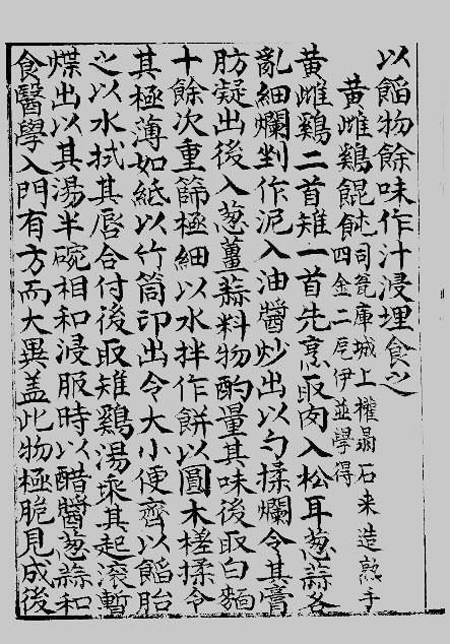 以餡物餘味作汁浸埋食之
黃雌鷄餛飩
司瓮庫城上權石來造熟手
四金二伊並學得
黃雌鷄二首雉一首先烹取肉入松耳葱蒜各
亂細爛剉作泥入油醬炒出以勺揉爛令其膏
肪凝出後入葱薑蒜料物酌量其味後取白麵
十餘次重篩極細以水拌作餠以圓木槎揉令
其極薄如紙以竹筒印出令大小便齊以餡胎
之以水拭其唇合付後取雉鷄湯乘其起滾暫
煠出以其湯半碗相和浸服時以醋醬葱蒜和
食醫學入門有方而大異盖此物極脆見成後